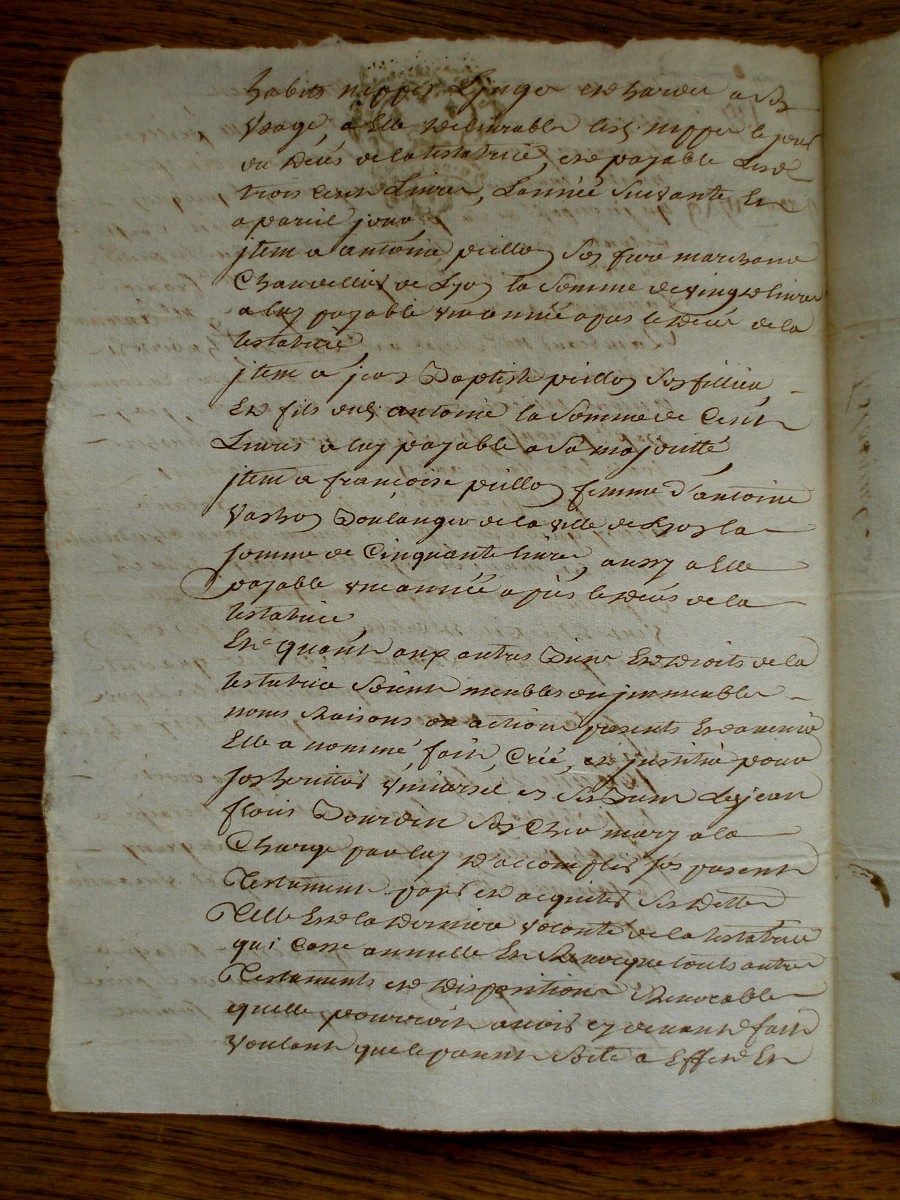 habits nippes Linges et hardes a son
Usage, a Elle delivrable lesd. nippes le jour
du deces de la testatrice, et payable lesd.
trois cent Livres, Lannée Suivante En
a pareil jour,
jtem a antoine pillon son frere marchand
Chandellier de Lyon la Somme de vingt livres
a luy payable une année apres le deces de la
testatrice
jtem a jean Baptiste pillon son filleul
Et fils dud. antoine la Somme de Cent
Livres a luy payable a Sa majorité
jtem a francoise pillon femme d'antoine
Boulanger de la ville de Lyon la
Somme de Cinquante livres, aussy a Elle
payable une année après le deces de la
testatrice
Et quant aux autres Biens Et droits de la
testatrice Soient meubles ou jmmeubles
noms Raisons ou actions presents Et avenir
Elle a nommé, fait, Créé, et jnstitué pour
Son heritier Universel en Ses Biens Led. jean
flouis Bourdin Son Cher mary a la
Charge par luy d'accomplir Son present
Testament payer et acquiter Ses dettes
Telle Est la Derniere volonté de la testatrice
qui Casse annulle Et Revoque touts autres
Testaments et dispositions Revocables
quelle pourroit avoir cy devant fait
voulant que le present Sorte a Effet Et